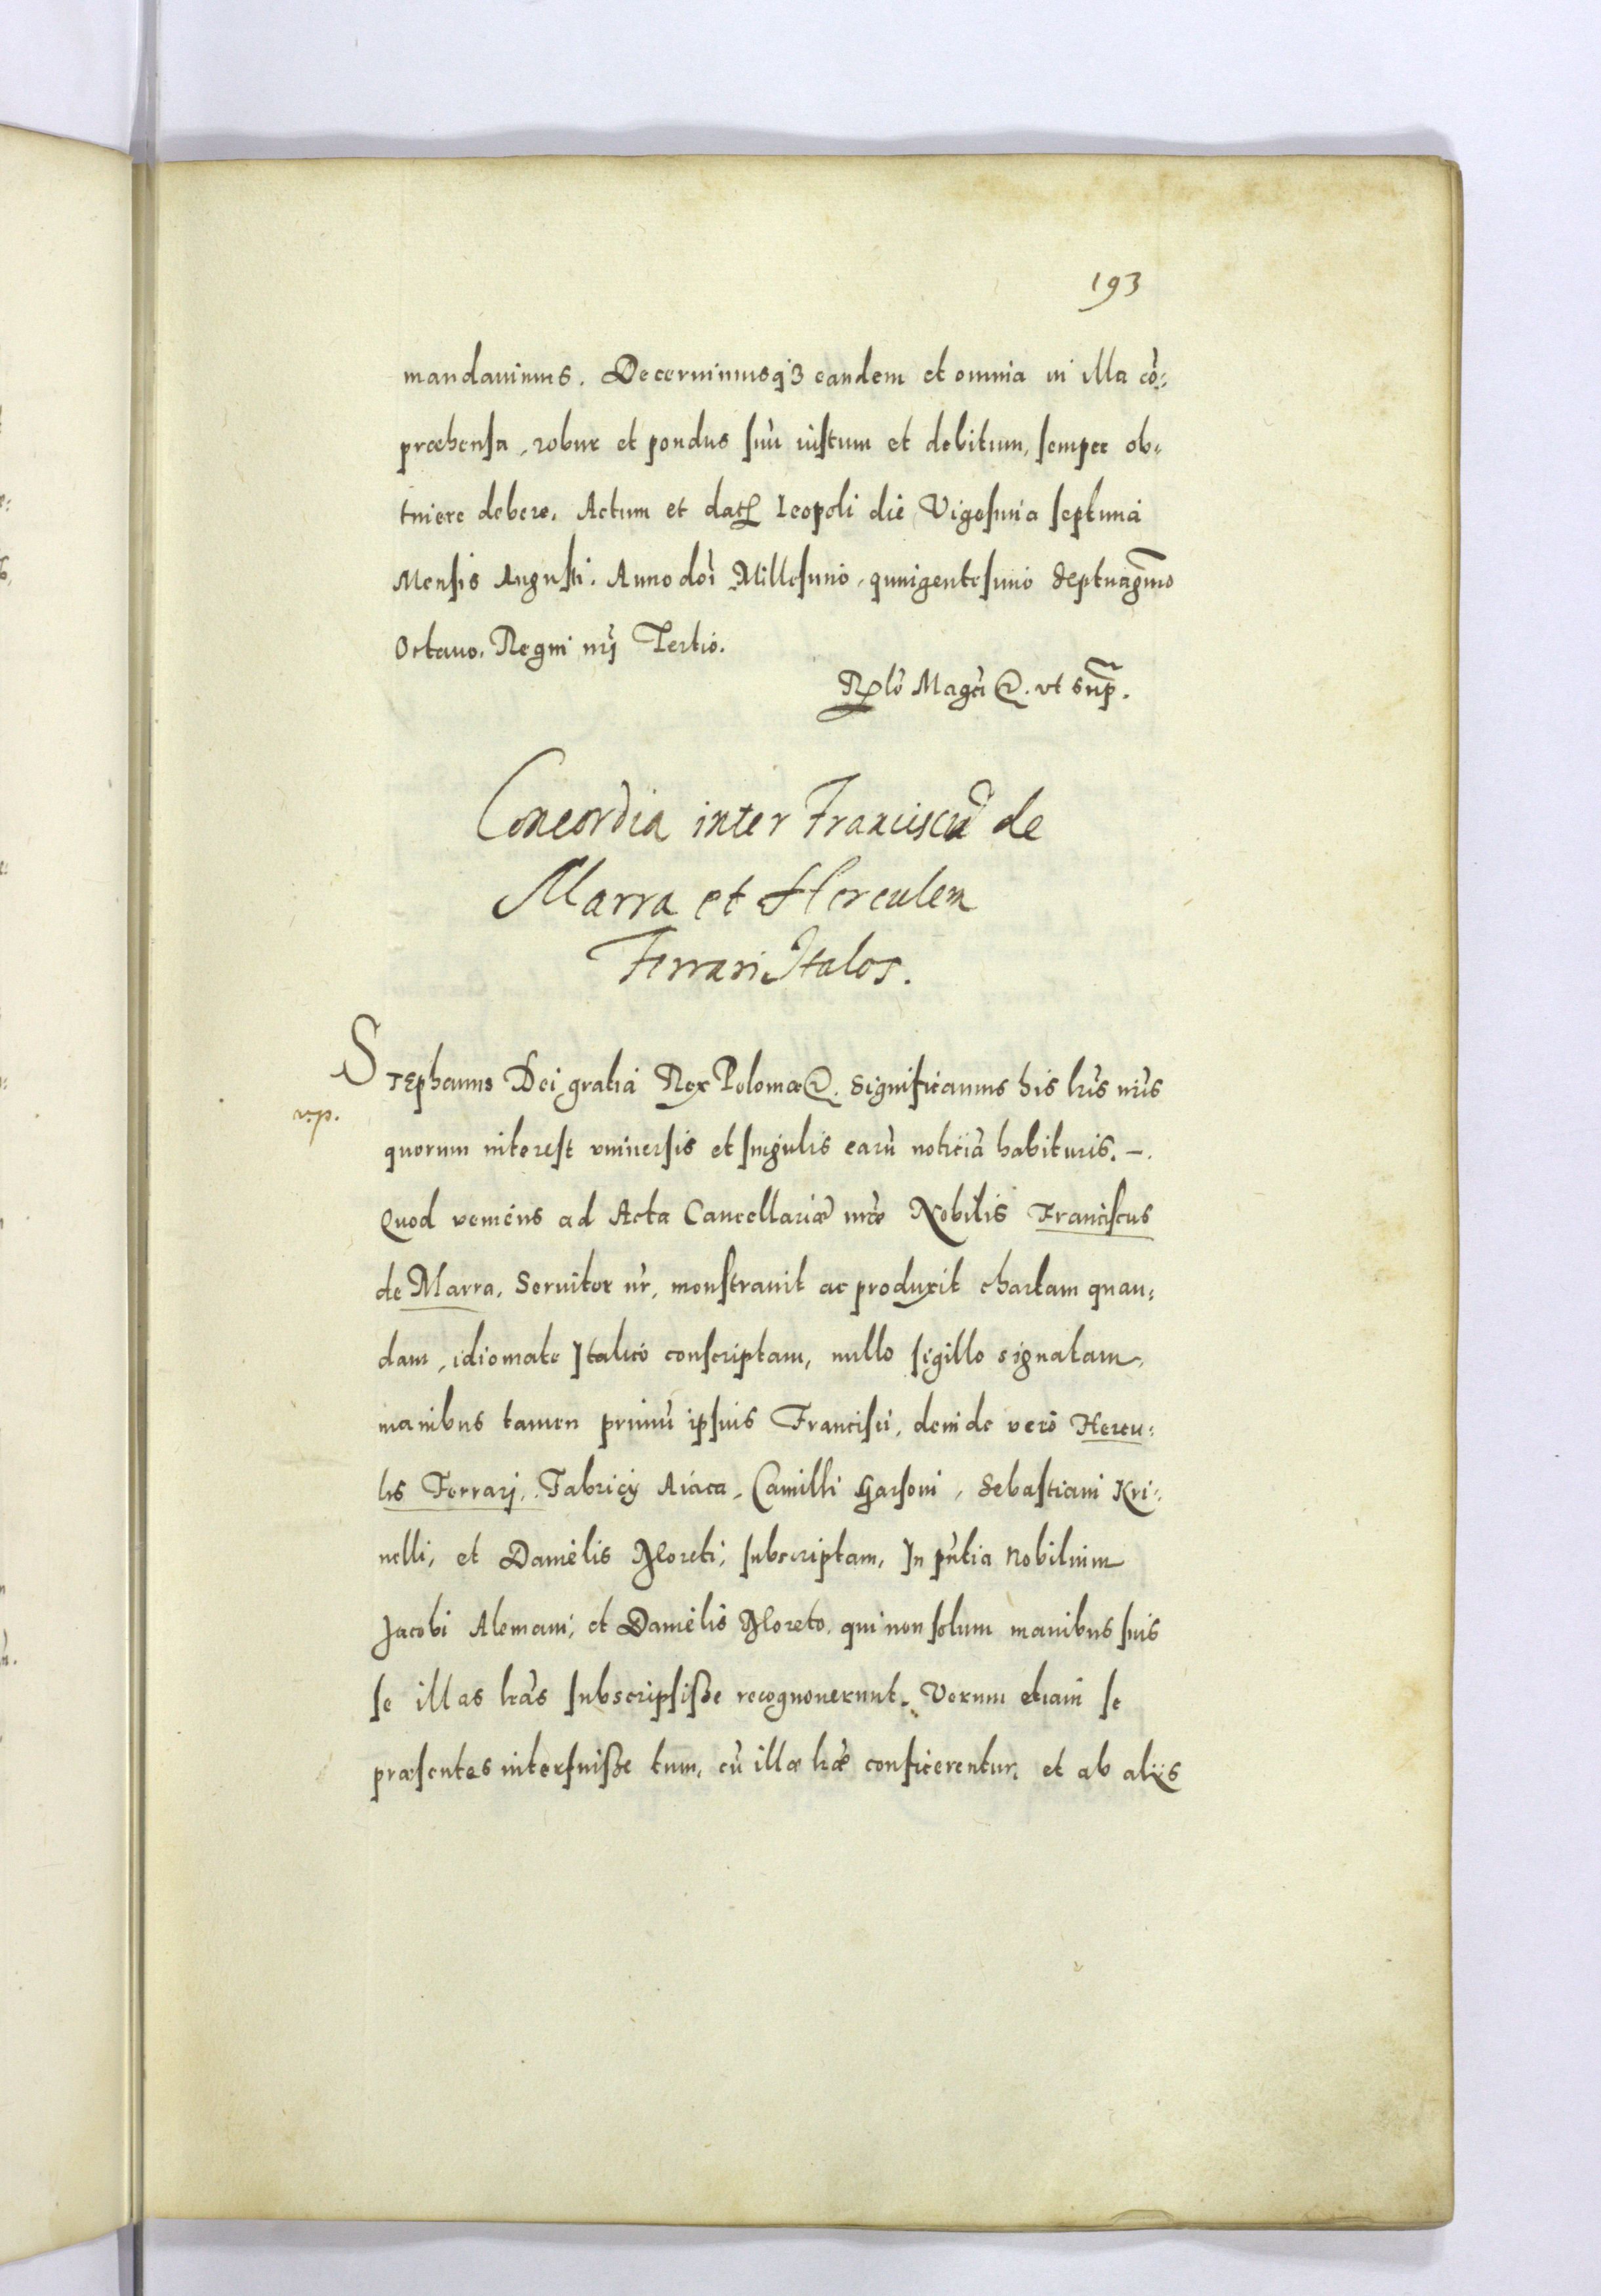 193
mandauimus. Decernimusq3 eandem et omnia in illa cō:
præhensa, robur et pondus suū iustum et debitum, semper ob:
tinere debere. Actum et dat. Leopoli die Vigesima septima
Mensis Augusti. Anno doī Millesimo, quingentesimo Septuagmo
Octauo. Regni nrī Tertio.
Rlō Magci. vt sup.
Concordia inter Franciscū de
Marra et Herculem
Ferrari Italos.
Stephanus Dei gratia Rex Poloniæ. Significamus his lrīs nrīs
v.p.
quorum interest vniuersis et singulis earū noticiā habituris. -.
Quod veniens ad Acta Cancellariæ nræ Nobilis Franciscus
de Marra, Seruitor nr, monstrauit ac produxit chartam quan:
dam, idiomate Italico conscriptam, nullo sigillo signatam,
manibus tamen primū ipsius Francisci, deinde verò Hercu:
lis Ferrarj, Fabricij Aiaca, Camilli Garsoni, Sebastiani Kri:
nelli, et Danielis Floreti, subscriptam, In pñtia Nobilium
Jacobi Alemani, et Danielis Floreto, qui non solum manibus suis
se illas lrās subscripsiße recognouerunt. Verum etiam se
præsentes interfuiße tum, cū illæ lræ conficerentur, et ab alijs